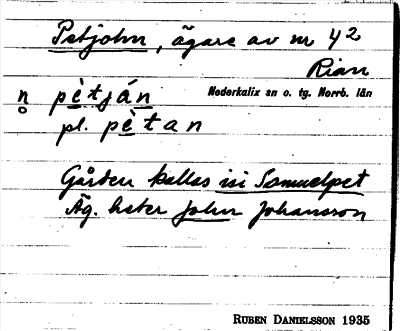 Petjohn, ägare av nr 42
Rian
Nederkalix sn o. tg. Norrb. län
n pètján
pl. pètan
Gården kallas isi Samuelpet
Äg. heter John Johansson
RUBEN DANIELSSON 1935